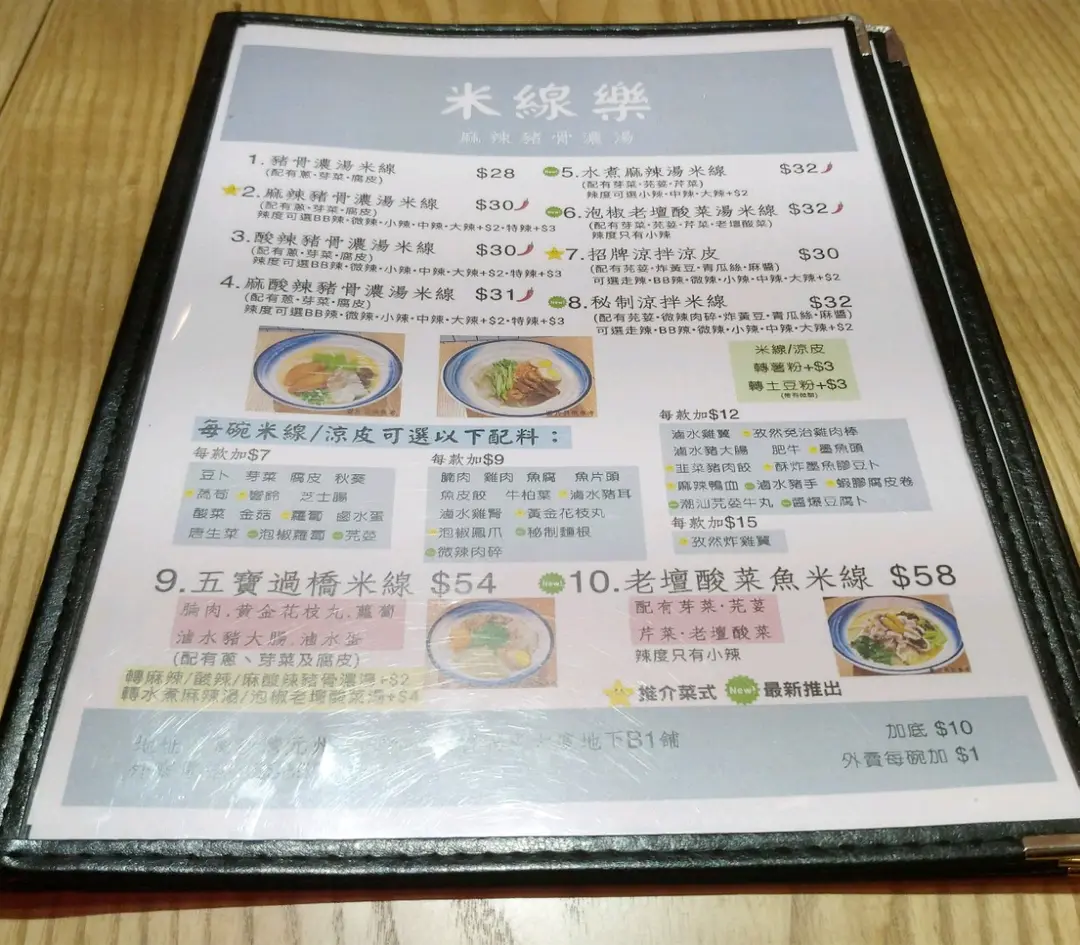 米線樂
麻辣豬骨濃湯
1. 豬骨濃湯米線 $28
(配有蔥·芽菜·腐皮)
2. 麻辣豬骨濃湯米線 $30
(配有蔥·芽菜·腐皮)
辣度可選BB辣·微辣·小辣·中辣·大辣+$2·特辣+$3
3. 酸辣豬骨濃湯米線 $30
(配有蔥·芽菜·腐皮)
辣度可選BB辣·微辣·小辣·中辣·大辣+$2·特辣+$3
4. 麻酸辣豬骨濃湯米線 $31
(配有蔥·芽菜·腐皮)
辣度可選BB辣·微辣·小辣·中辣·大辣+$2·特辣+$3
New! 5. 水煮麻辣湯米線 $32
(配有芽菜·芫荽·芹菜)
辣度可選小辣·中辣·大辣+$2
New! 6. 泡椒老壇酸菜湯米線 $32
(配有芽菜·芫荽·芹菜·老壇酸菜)
辣度只有小辣
7. 招牌涼拌涼皮 $30
(配有芫荽·炸黃豆·青瓜絲·麻醬)
可選走辣·BB辣·微辣·小辣·中辣·大辣+$2
New! 8. 秘制涼拌米線 $32
(配有芫荽·微辣肉碎·炸黃豆·青瓜絲·麻醬)
可選走辣·BB辣·微辣·小辣·中辣·大辣+$2
米線/涼皮
轉薯粉+$3
轉土豆粉+$3
每碗米線/涼皮可選以下配料：
每款加$7
豆卜 芽菜 腐皮 秋葵
萵筍 響鈴 芝士腸
酸菜 金菇 蘿蔔 鹵水蛋
唐生菜 泡椒蘿蔔 芫荽
每款加$9
腩肉 雞肉 魚腐 魚片頭
魚皮餃 牛柏葉 滷水豬耳
滷水雞腎 黃金花枝丸
泡椒鳳爪 秘制麵根
微辣肉碎
每款加$12
滷水雞翼 孜然免治雞肉棒
滷水豬大腸 肥牛 墨魚頭
韮菜豬肉餃 酥炸墨魚膠豆卜
麻辣鴨血 滷水豬手 蝦膠腐皮卷
潮汕芫荽牛丸 醬爆豆腐卜
每款加$15
孜然炸雞翼
9. 五寶過橋米線 $54
腩肉,黃金花枝丸,蘿蔔
滷水豬大腸,滷水蛋
(配有蔥、芽菜及腐皮)
轉麻辣/酸辣/麻酸辣豬骨濃湯+$2
轉水煮麻辣湯/泡椒老壇酸菜湯+$4
New! 10. 老壇酸菜魚米線 $58
配有芽菜·芫荽
芹菜·老壇酸菜
辣度只有小辣
推介菜式 New! 最新推出
地址 元州 地下B1舖
加底 $10
外賣每碗加 $1